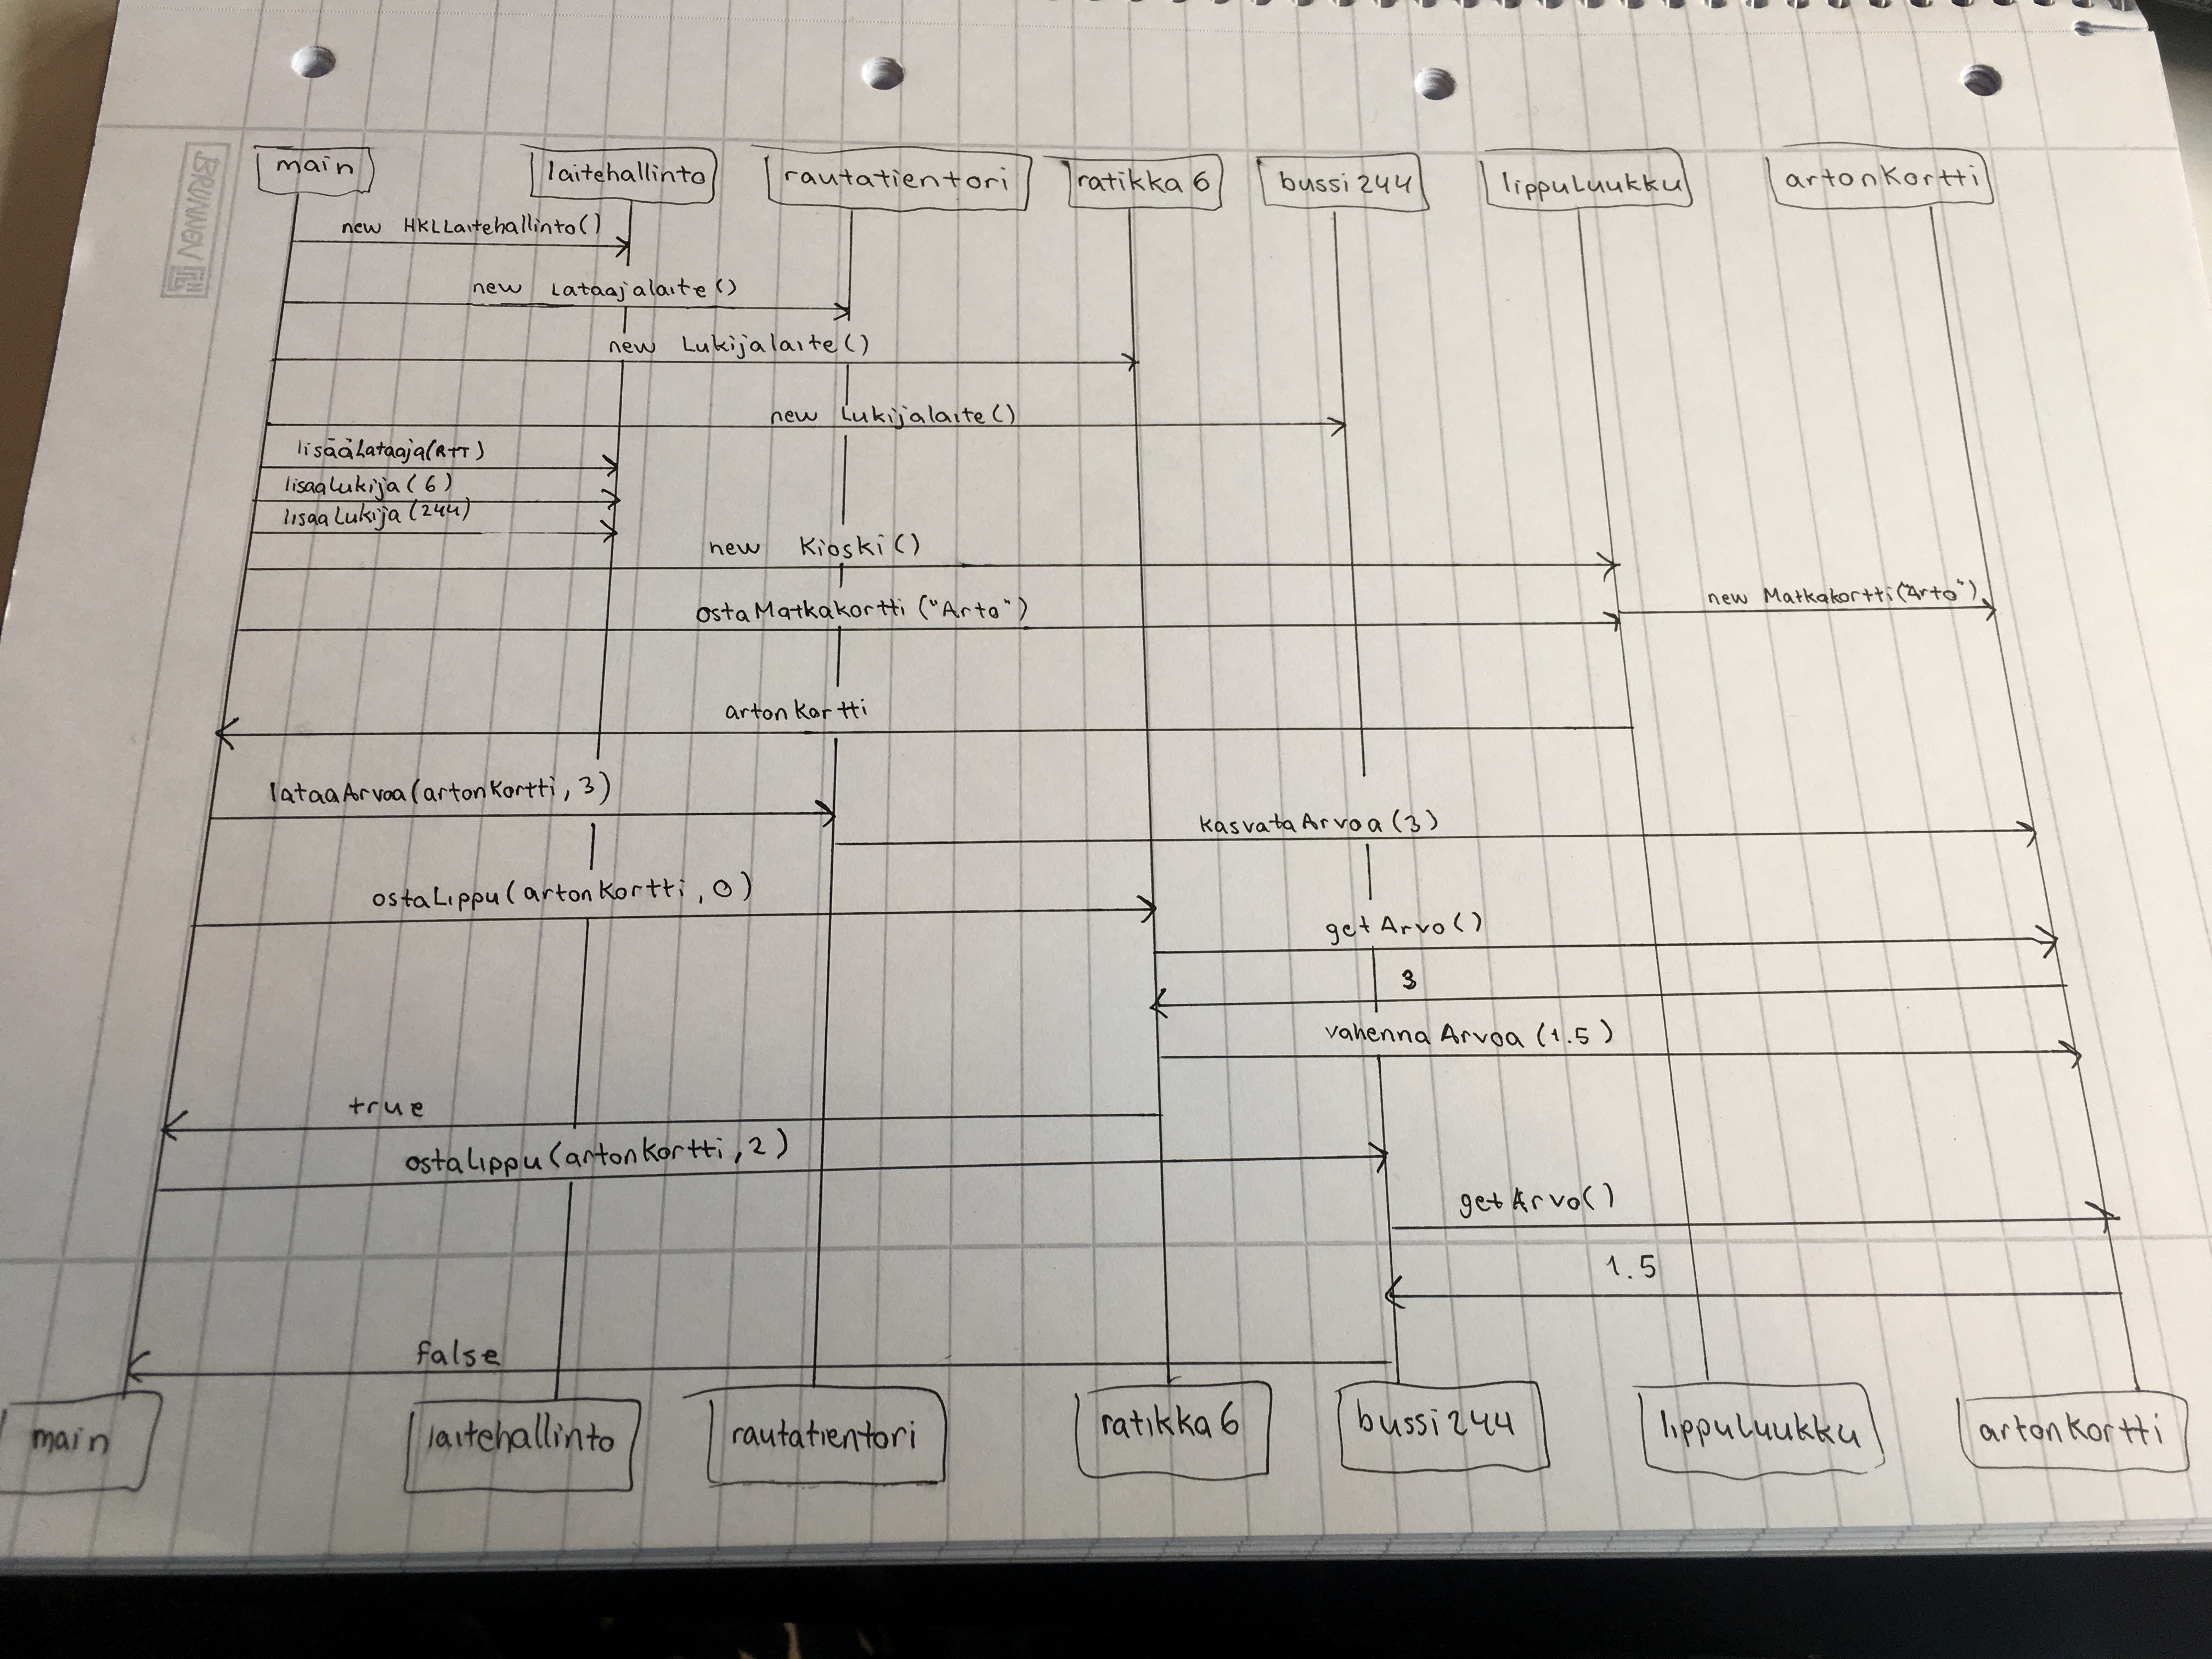 main laitehallinto rautatientori ratikka 6 bussi 244 lippuluukku artonKortti
BRUNNEN
new HKLLaitehallinto()
new Lataajalaite()
new Lukijalaite()
new Lukijalaite()
lisääLataaja(RTT)
lisaaLukija(6)
lisaaLukija(244)
new Kioski()
ostaMatkakortti("Arto")
new Matkakortti("Arto")
artonKortti
lataaArvoa(artonKortti, 3)
kasvataArvoa(3)
ostaLippu(artonKortti, 0)
getArvo()
3
vahennaArvoa(1.5)
true
ostaLippu(artonKortti, 2)
getArvo()
1.5
false
main laitehallinto rautatientori ratikka 6 bussi 244 lippuluukku artonKortti